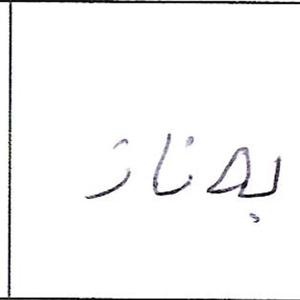 بەناز